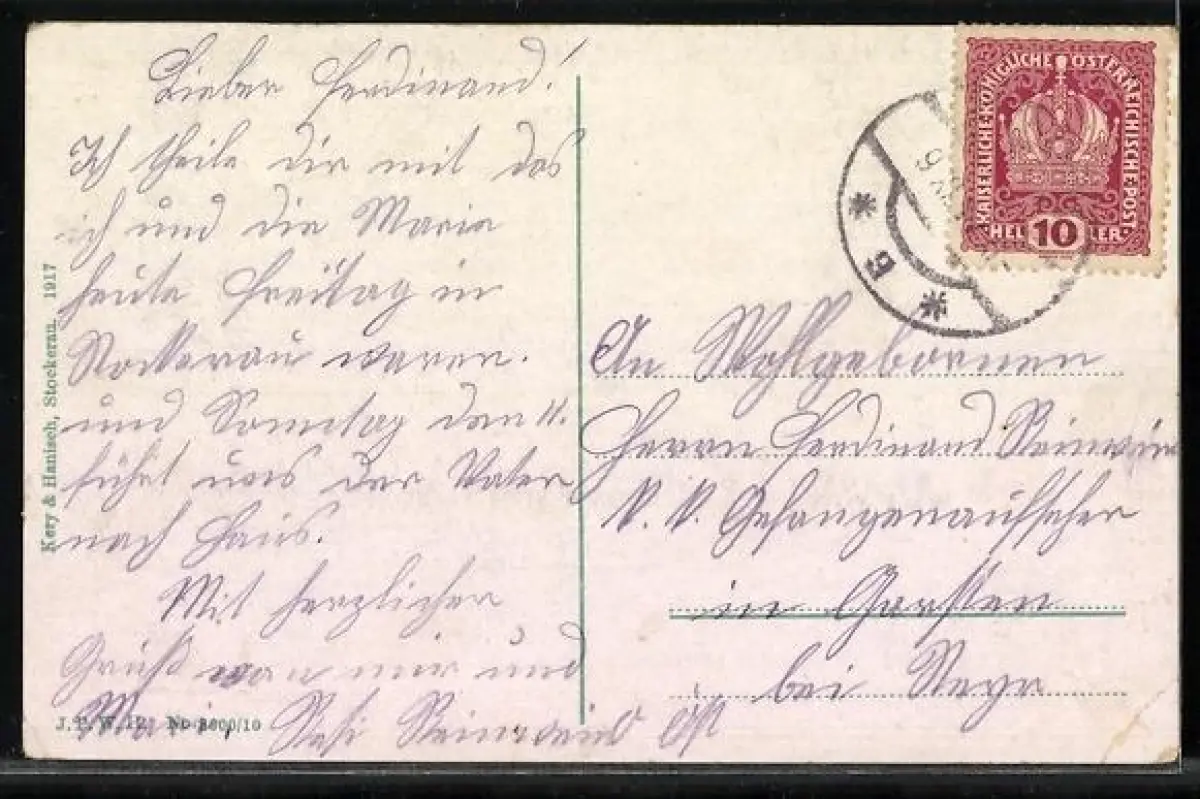 Lieber Ferdinand!
Ich theile dir mit das
ich und die Maria
heute Freitag in
Stockerau waren.
und Sonntag den 11.
führt uns der Vater
nach Haus.
Mit herzlicher
Gruß von mir und
Marie, Resi
Kery & Hanisch, Stockerau. 1917
J. P. W. 12 No 3600/10
KAISERLICHE·KÖNIGLICHE ÖSTERREICHISCHE·POST
HELLER
10
9
* B *
An Wohlgebornen
Herrn Ferdinand
K. K. Gefangenaufseher
in Garsten
bei Steyr